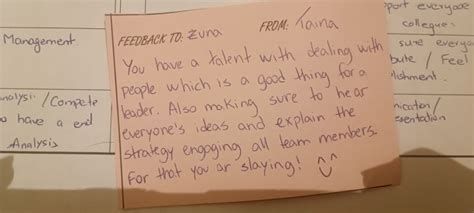 Management
nalysis / Compete
o have a end
Analysis
FEEDBACK TO: Zuna FROM: Taina
You have a talent with dealing with
people which is a good thing for a
leader. Also making sure to hear
everyone's ideas and explain the
strategy engoging all team members.
For that you ar slaying! ^^
port everyone
collegues
sure everyo
bute / Feel
lishment.
nication/
esentation